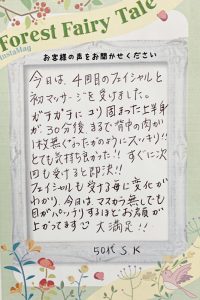 Forest Fairy Tale
InstaMag
お客様の声をお聞かせください
今日は、4回目のフェイシャルと
初マッサージを受けました。
ガチガチにコリ固まった上半身
が、30分後まるで背中の肉が
1枚無くなったかのようにスッキリ!!
とても気持ち良かった!! すぐに次
回も受けると即決!!
フェイシャルも受ける毎に変化が
わかり、今日は、マスカラ無しでも
目がパッチリするほどお顔が
上がってます 大満足!!
50代 S K